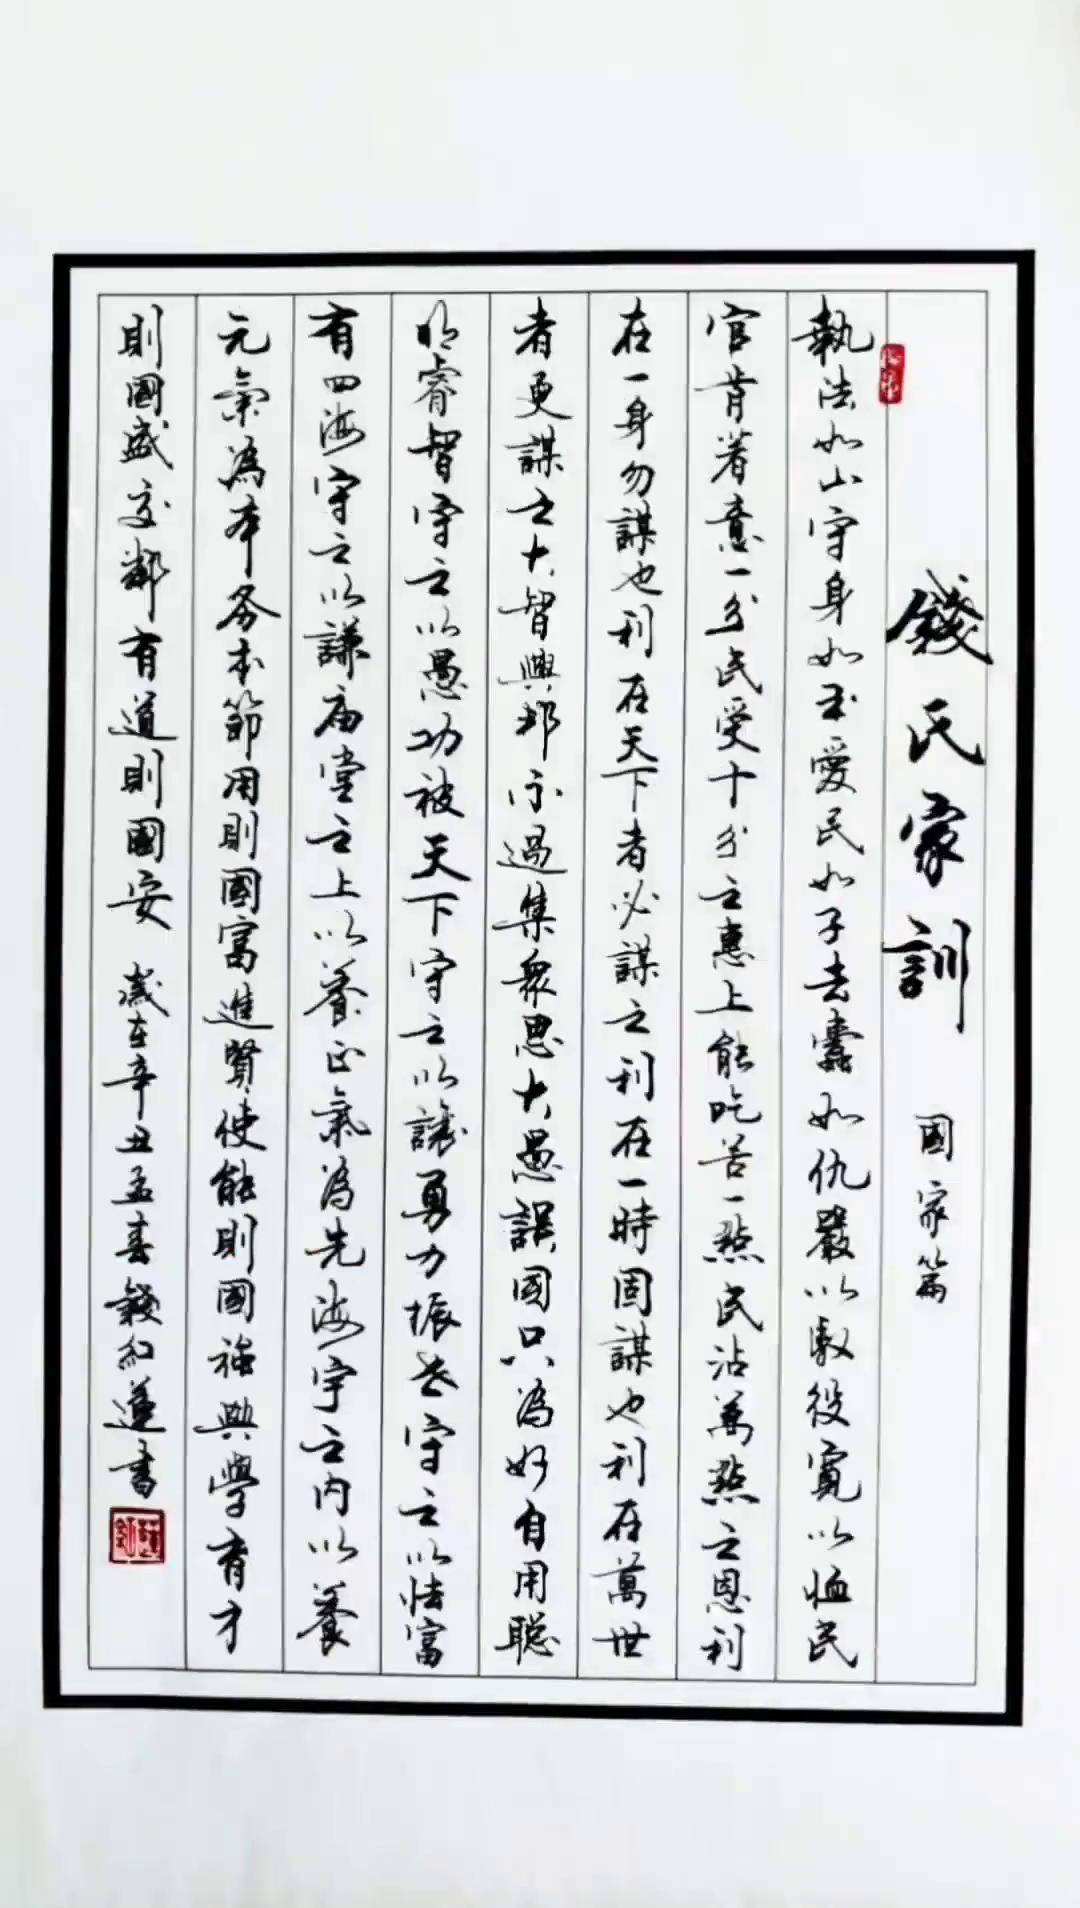 錢氏家訓 國家篇
執法如山守身如玉愛民如子去蠹如仇嚴以馭役寬以恤民
官肯著意一分民受十分之惠上能吃苦一點民沾萬點之恩利
在一身勿謀也利在天下者必謀之利在一時固謀也利在萬世
者更謀之大智興邦不過集衆思大愚誤國只為好自用聪
明睿智守之以愚功被天下守之以讓勇力振世守之以怯富
有四海守之以謙庙堂之上以養正氣為先海宇之内以養
元氣為本务本節用則國富進賢使能則國强興學育才
則國盛交鄰有道則國安 歲在辛丑孟春錢紅蓮書